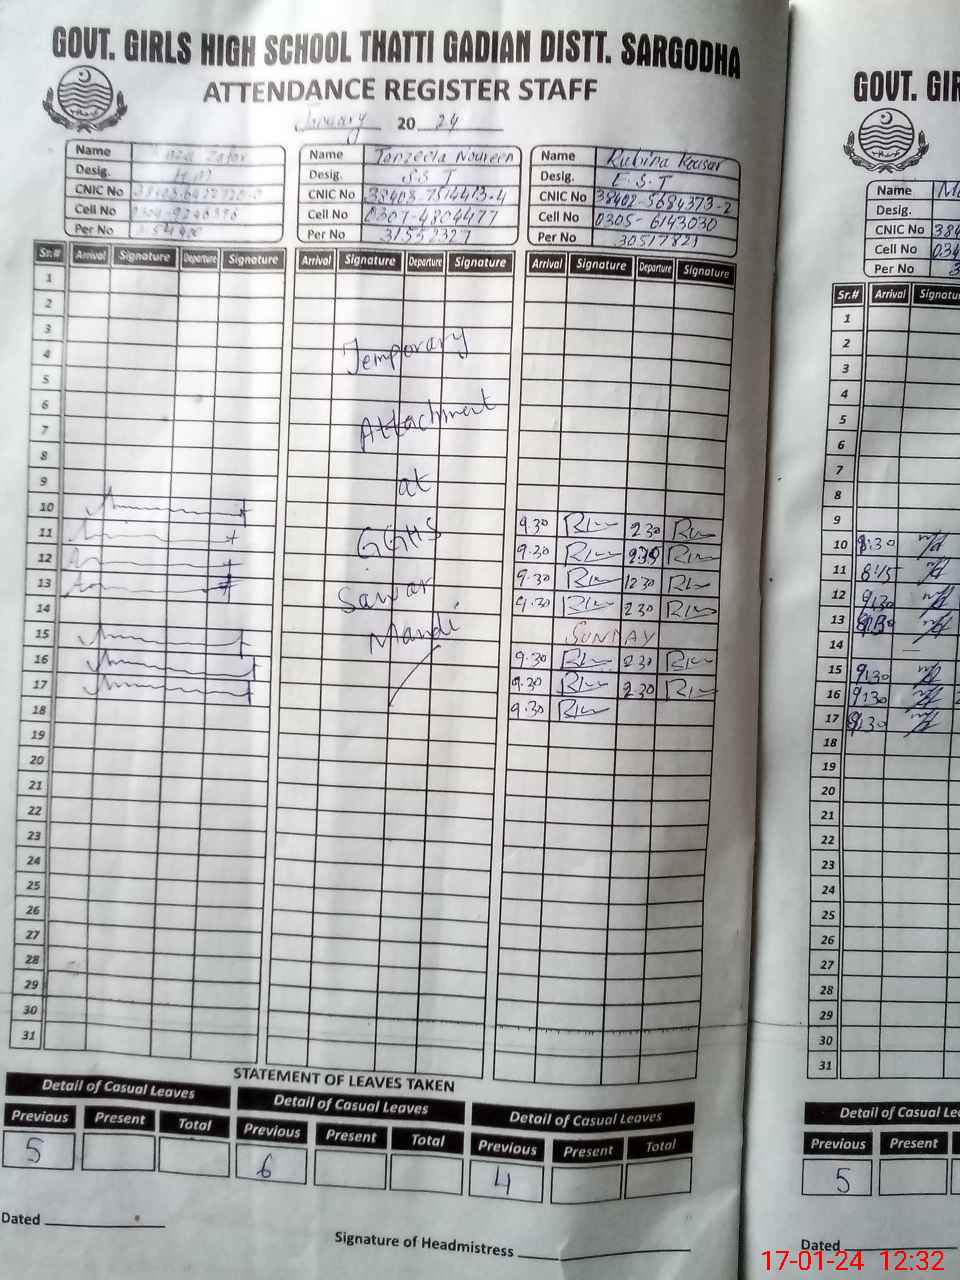 GOVT. GIRLS HIGH SCHOOL THATTI GADIAN DISTT. SARGODHA
ATTENDANCE REGISTER STAFF
January 20 24
Name Zafar
Desig. H M
CNIC No
Cell No
Per No
Name Tanzeela Noureen
Desig. S.S.T
CNIC No 38403-7514413-4
Cell No 0307-4804477
Per No 31552327
Name Rubina Kousar
Desig. E.S.T
CNIC No 38402-5684373-2
Cell No 0305-6143030
Per No 30517821
Sr.# Arrival Signature Departure Signature Arrival Signature Departure Signature Arrival Signature Departure Signature
1
2
3
4
5
6
7
8
9
10
11
12
13
14
15
16
17
18
19
20
21
22
23
24
25
26
27
28
29
30
31
Temporary
Attachment
at
GGHS
Mandi
9.30 2 30
9.30
9.30 12 30
9.30 2 30
SUNDAY
9.30 2 30
9.30 2 30
9.30
STATEMENT OF LEAVES TAKEN
Detail of Casual Leaves Detail of Casual Leaves Detail of Casual Leaves
Previous Present Total Previous Present Total Previous Present Total
5 6 4
Dated
Signature of Headmistress
GOVT. GIR
Name
Desig.
CNIC No 384
Cell No 034
Per No 3
Sr.# Arrival Signatu
1
2
3
4
5
6
7
8
9
10 8:30
11 8:15
12 9:30
13
14
15 9:30
16 9:30
17 9:30
18
19
20
21
22
23
24
25
26
27
28
29
30
31
Detail of Casual Le
Previous Present
5
Dated
17-01-24 12:32